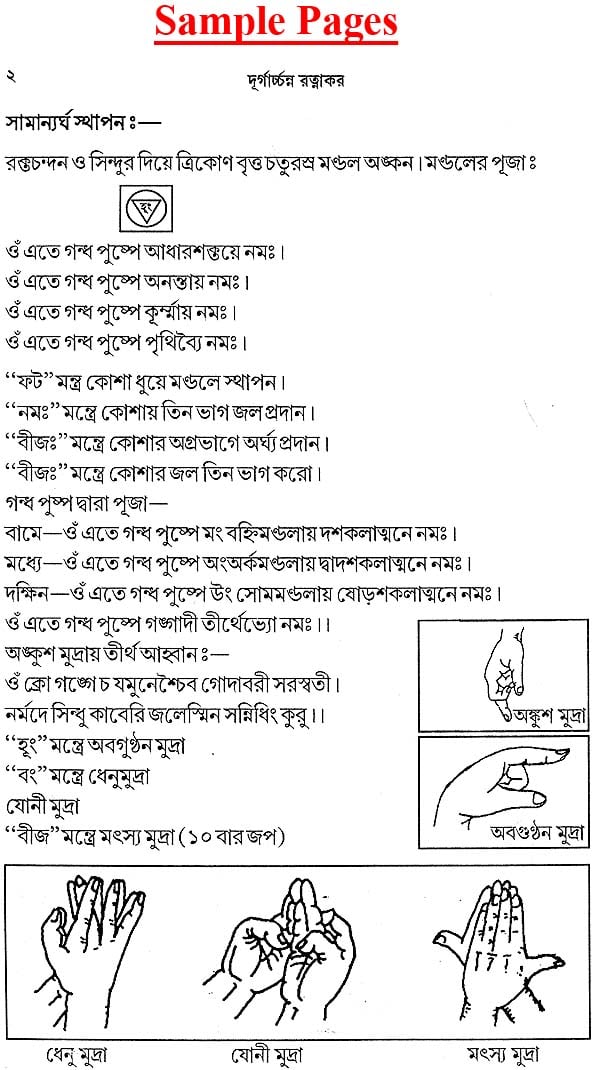 Sample Pages
২
দূর্গার্চ্চন রত্নাকর
সামান্যর্ঘ স্থাপন ঃ—
রক্তচন্দন ও সিন্দুর দিয়ে ত্রিকোণ বৃত্ত চতুরস্র মণ্ডল অঙ্কন। মণ্ডলের পূজা ঃ
হূং
ওঁ এতে গন্ধ পুষ্পে আধারশক্তয়ে নমঃ।
ওঁ এতে গন্ধ পুষ্পে অনন্তায় নমঃ।
ওঁ এতে গন্ধ পুষ্পে কূর্ম্মায় নমঃ।
ওঁ এতে গন্ধ পুষ্পে পৃথিব্যৈ নমঃ।
“ফট” মন্ত্র কোশা ধুয়ে মণ্ডলে স্থাপন।
“নমঃ” মন্ত্রে কোশায় তিন ভাগ জল প্রদান।
“বীজঃ” মন্ত্রে কোশার অগ্রভাগে অর্ঘ্য প্রদান।
“বীজঃ” মন্ত্রে কোশার জল তিন ভাগ করো।
গন্ধ পুষ্প দ্বারা পূজা—
বামে—ওঁ এতে গন্ধ পুষ্পে মং বহ্নিমণ্ডলায় দশকলাত্মনে নমঃ।
মধ্যে—ওঁ এতে গন্ধ পুষ্পে অংঅর্কমণ্ডলায় দ্বাদশকলাত্মনে নমঃ।
দক্ষিন—ওঁ এতে গন্ধ পুষ্পে উং সোমমণ্ডলায় ষোড়শকলাত্মনে নমঃ।
ওঁ এতে গন্ধ পুষ্পে গঙ্গাদী তীর্থেভ্যো নমঃ।।
অঙ্কুশ মুদ্রায় তীর্থ আহ্বান ঃ—
ওঁ ক্রো গঙ্গে চ যমুনেশ্চৈব গোদাবরী সরস্বতী।
নর্মদে সিন্ধু কাবেরি জলেস্মিন সন্নিধিং কুরু।।
“হূং” মন্ত্রে অবগুণ্ঠন মুদ্রা
“বং” মন্ত্রে ধেনুমুদ্রা
যোনী মুদ্রা
“বীজ” মন্ত্রে মৎস্য মুদ্রা (১০ বার জপ)
অঙ্কুশ মুদ্রা
অবগুণ্ঠন মুদ্রা
ধেনু মুদ্রা
যোনী মুদ্রা
মৎস্য মুদ্রা